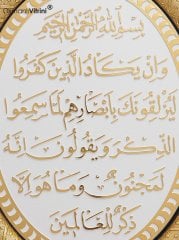 OsmanlıVitrini®
بسم الله الرحمن الرحيم
وَاِنْ يَكَادُ الَّذٖينَ كَفَرُوا
لَيُزْلِقُونَكَ بِاَبْصَارِهِمْ لَمَّا سَمِعُوا
الذِّكْرَ وَيَقُولُونَ اِنَّهُ
لَمَجْنُونٌ وَمَا هُوَ اِلَّا
ذِكْرٌ لِلْعَالَمٖينَ